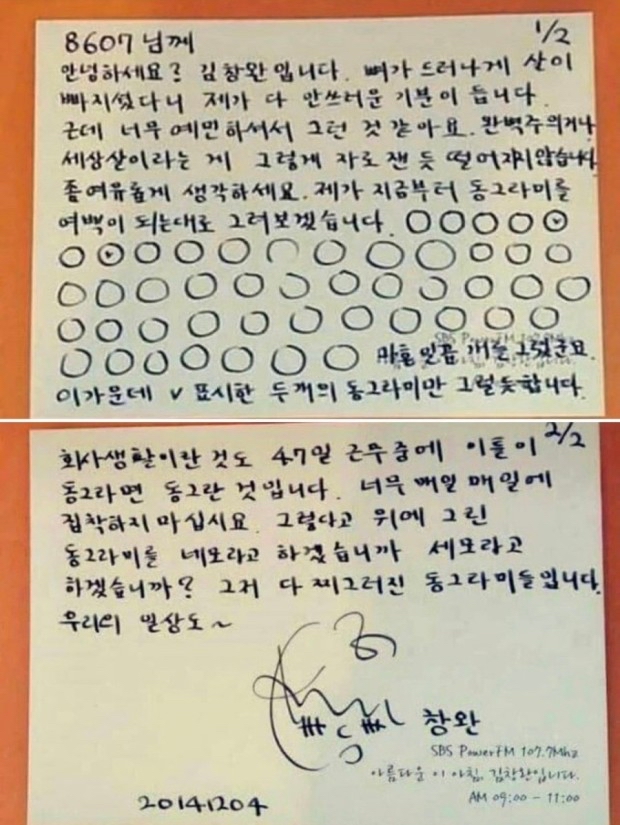 8607님께
1/2
안녕하세요? 김창완입니다. 뼈가 드러나게 살이
빠지셨다니 제가 다 안쓰러운 기분이 듭니다.
근데 너무 예민하셔서 그런 것 같아요. 완벽주의거나
세상살이라는 게 그렇게 자로 잰 듯 떨어지지않습니다.
좀 여유롭게 생각하세요. 제가 지금부터 동그라미를
여백이 되는대로 그려보겠습니다.
SBS PowerFM 107.7Mhz
마흔 일곱 개를 그렸군요.
이가운데 v 표시한 두개의 동그라미만 그럴듯합니다.
2/2
회사생활이란 것도 47일 근무 중에 이틀이
동그라면 동그란 것입니다. 너무 매일 매일에
집착하지 마십시요. 그렇다고 위에 그린
동그라미를 네모라고 하겠습니까 세모라고
하겠습니까? 그저 다 찌그러진 동그라미들입니다.
우리의 일상도~
창완
SBS PowerFM 107.7Mhz
아름다운 이 아침, 김창완입니다.
AM 09:00 - 11:00
20141204